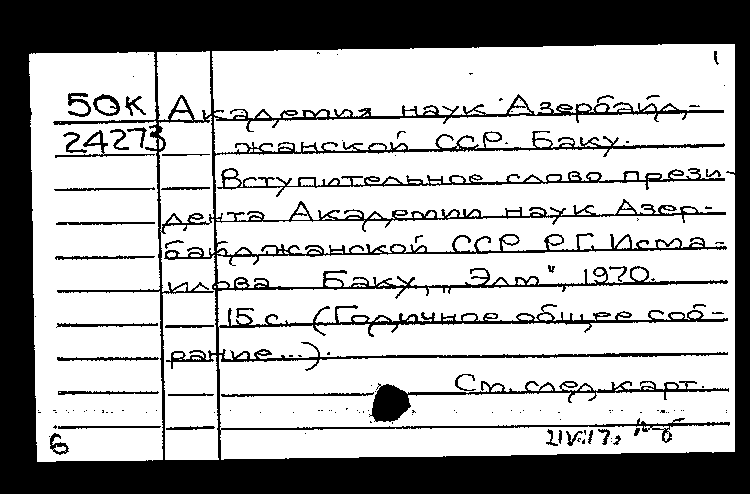 1
50к Академия наук Азербайд-
24273 жанской ССР. Баку.
Вступительное слово прези-
дента Академии наук Азер-
байджанской ССР Р.Г. Исма-
илова. Баку, „Элм", 1970.
15 с. (Годичное общее соб-
рание...).
См. след. карт.
6